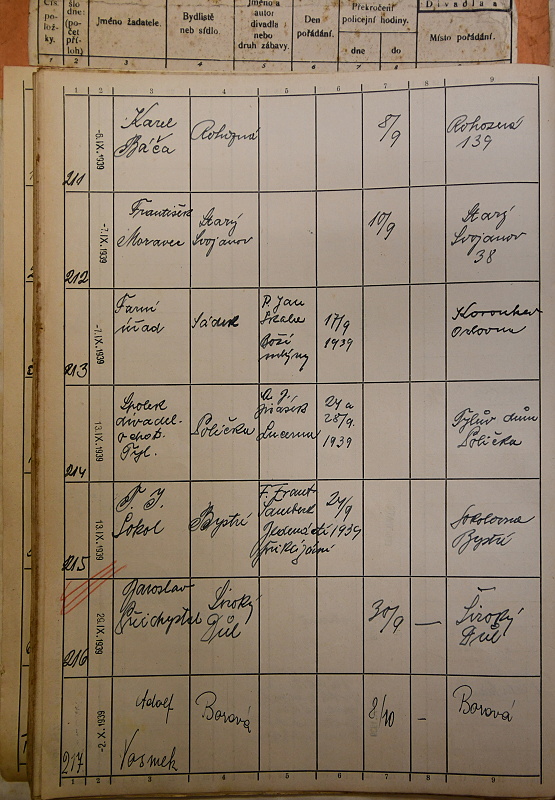 Čís.
po-
lož-
ky.
šlo
dne:
(po-
čet
pří-
loh)
Jméno žadatele.
Bydliště
neb sídlo.
Jméno a
autor
divadla
nebo
druh zábavy.
Den
pořádání.
Překročení
policejní hodiny.
dne
do
Divadla a
Místo pořádání.
1 2 3 4 5 6 7 8 9
211
-6. IX. 1939
Karel
Báča
Rohozná
8/9
Rohozná
139
212
-7. IX. 1939
František
Moravec
Starý
Svojanov
10/9
Starý
Svojanov
38
213
-7. IX. 1939
Farní
úřad
Sádek
P. Jan
Boží
mlýny
17/9
1939
Korouhev
Orlovna
214
13. IX. 1939
Spolek
divadel.
ochot.
Tyl.
Polička
Jirásek
Lucerna
24 a
28/9
1939
Tylův dům
Polička
215
13. IX. 1939
T. J.
Sokol
Bystré
F. Frant.
Šamberk
Jedenácté
přikázání
24/9
1939
Sokolovna
Bystré
216
29. IX. 1939
Jaroslav
Široký
Důl
30/9
—
Široký
Důl
217
-2. X. 1939
Adolf
Vasmek
Borová
8/10
–
Borová
1 2 3 4 5 6 7 8 9